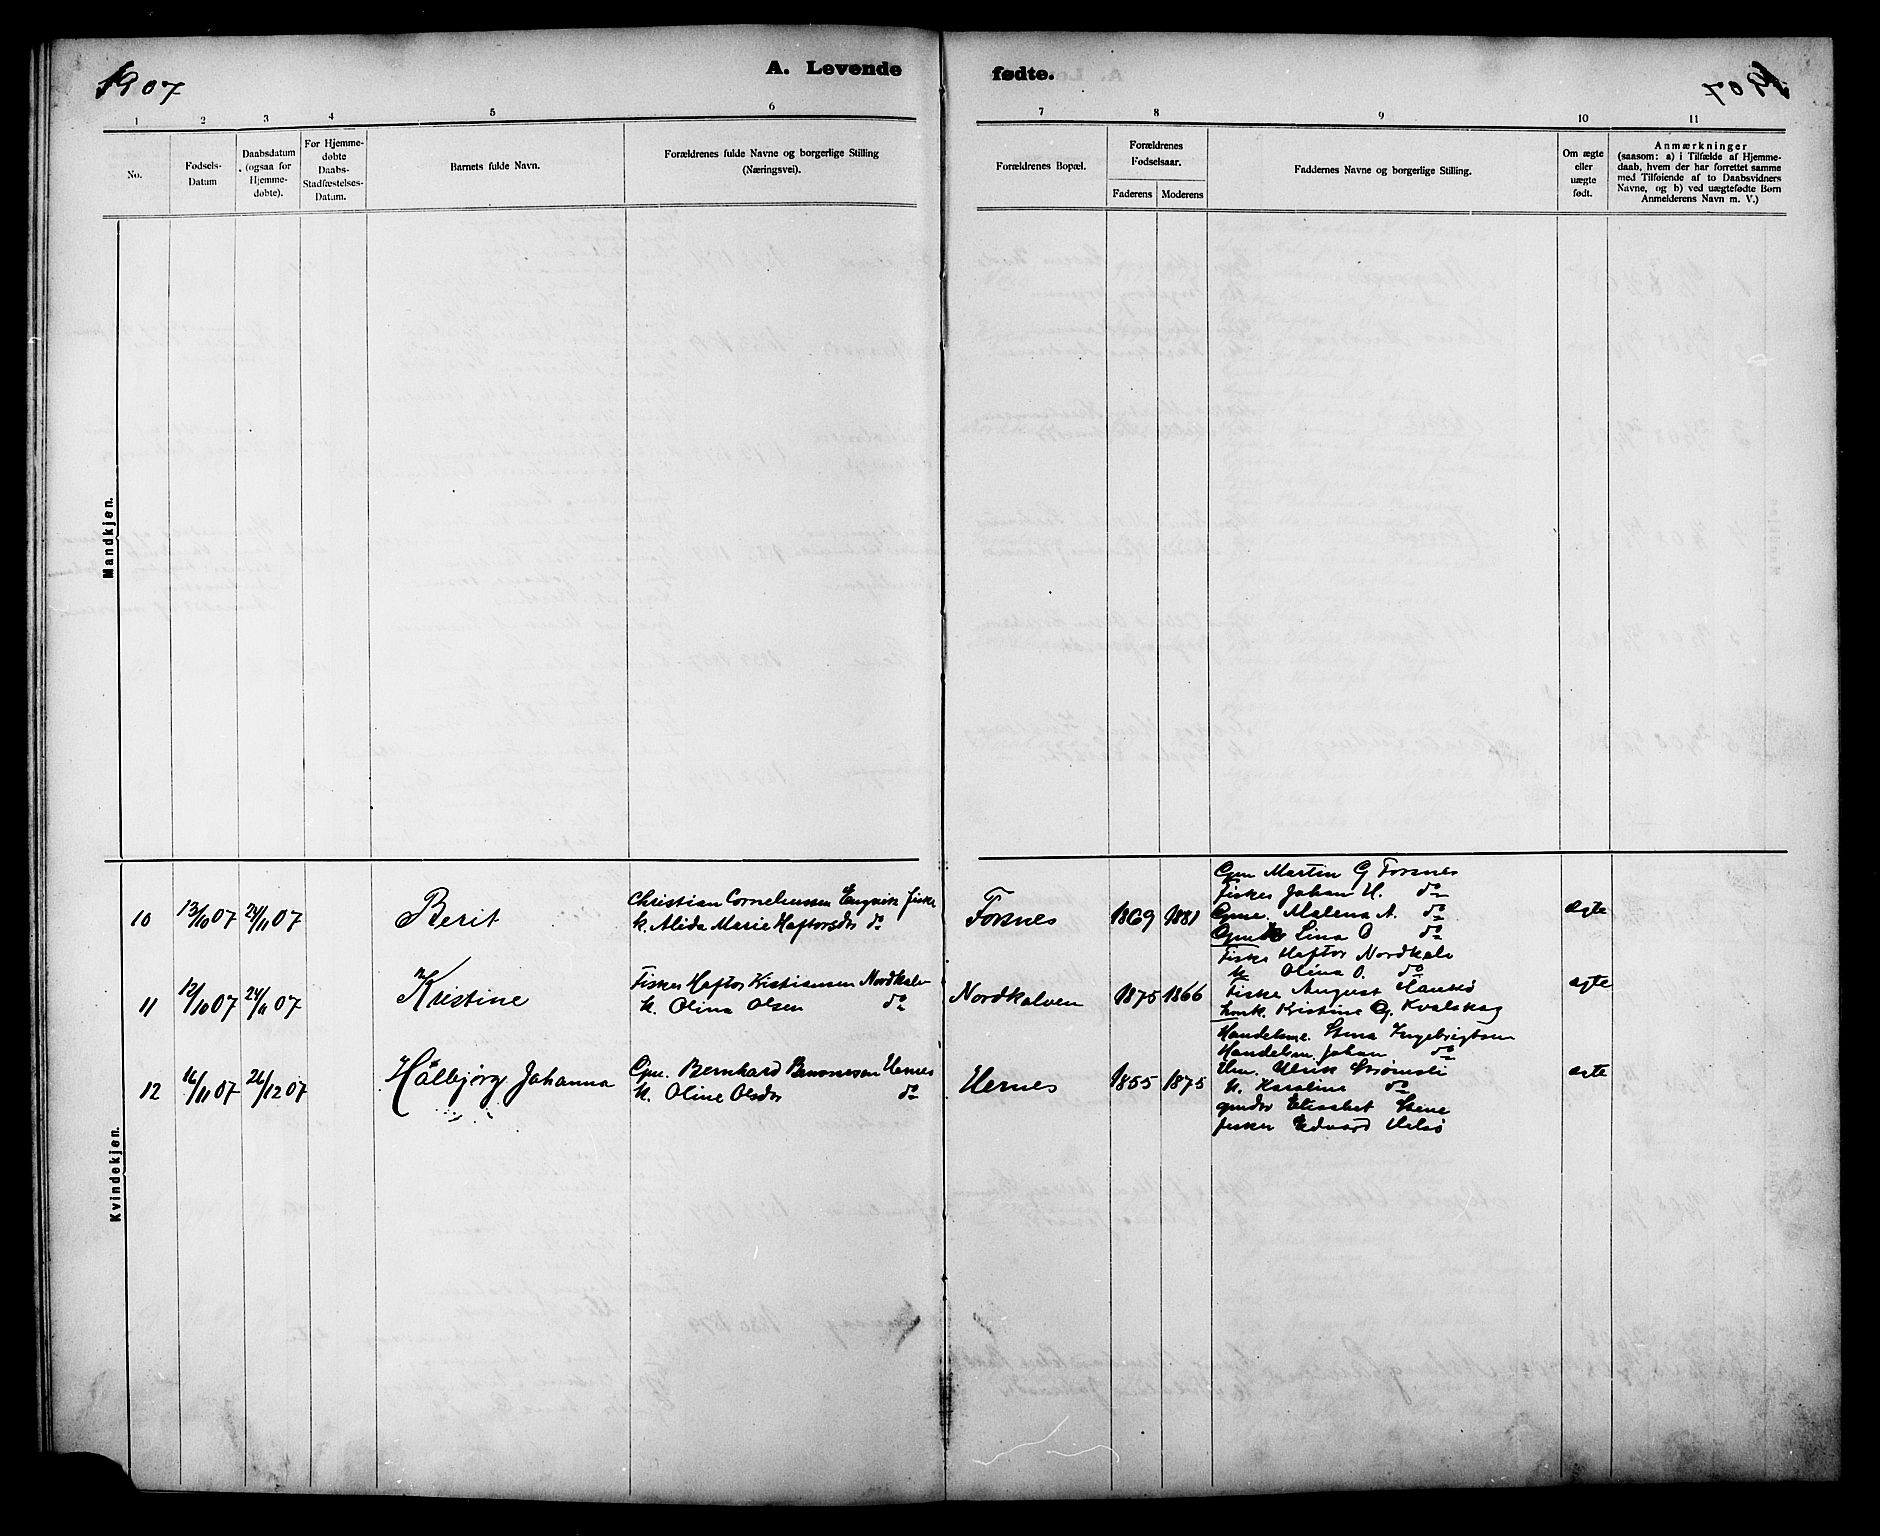 1907
A. Levende
fødte.
1907
1 2 3 4 5 6 7 8 9 10 11
No.
Fødsels-
Datum
Daabsdatum
(ogsaa for
Hjemme-
døbte).
For Hjemme-
døbte
Daabs-
Stadfæstelses-
Datum.
Barnets fulde Navn.
Forældrenes fulde Navne og borgerlige Stilling
(Næringsvei).
Forældrenes Bopæl.
Forældrenes
Fødselsaar.
Faderens Moderens
Faddernes Navne og borgerlige Stilling.
Om ægte
eller
uægte
født.
Anmærkninger
(saasom: a) i Tilfælde af Hjemme-
daab, hvem der har forrettet samme
med Tilføiende af to Daabsvidners
Navne, og b) ved uægtefødte Børn
Anmelderens Navn m. V.)
Mandkjøn.
Kvindekjøn.
10 13/10 07 24/11 07 Berit
Christian Corneliussen fisker
k. Alida Marie Haftorsdr do
Forsnes 1869 1881
Gm Martin G Forsnes
Fisker Johan H. do
Gme. Malena A. do
Lina O do
ægte
11 12/10 07 24/11 07 Kristine
Fisker Haftor Kristiansen Nordkalv
k. Olina Olsen do
Nordkalven 1875 1866
Fisker Haftor Nordkalv
k Olina O. do
Fisker August
Kristine G. Kvalskag
ægte
12 16/11 07 26/12 07 Hålbjørg Johanna
Gm. Bernhard Hernes
k. Oline Olsdr do
Hernes 1855 1875
Handelsme. Stina Ingebrigtsen
Handelsm. Johan do
Ulrik Strømsli
k. Karoline do
Elisabet
fisker Edvard
ægte